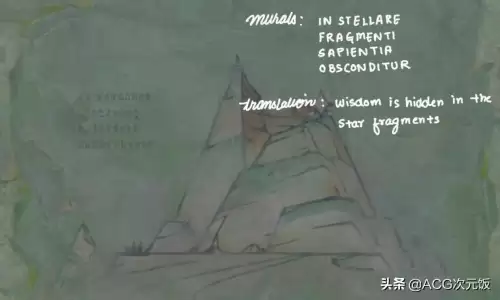 murals: IN STELLARE
FRAGMENTI
SAPIENTIA
OBSCONDITUR
translation: wisdom is hidden in the
star fragments
头条 @ACG次元饭